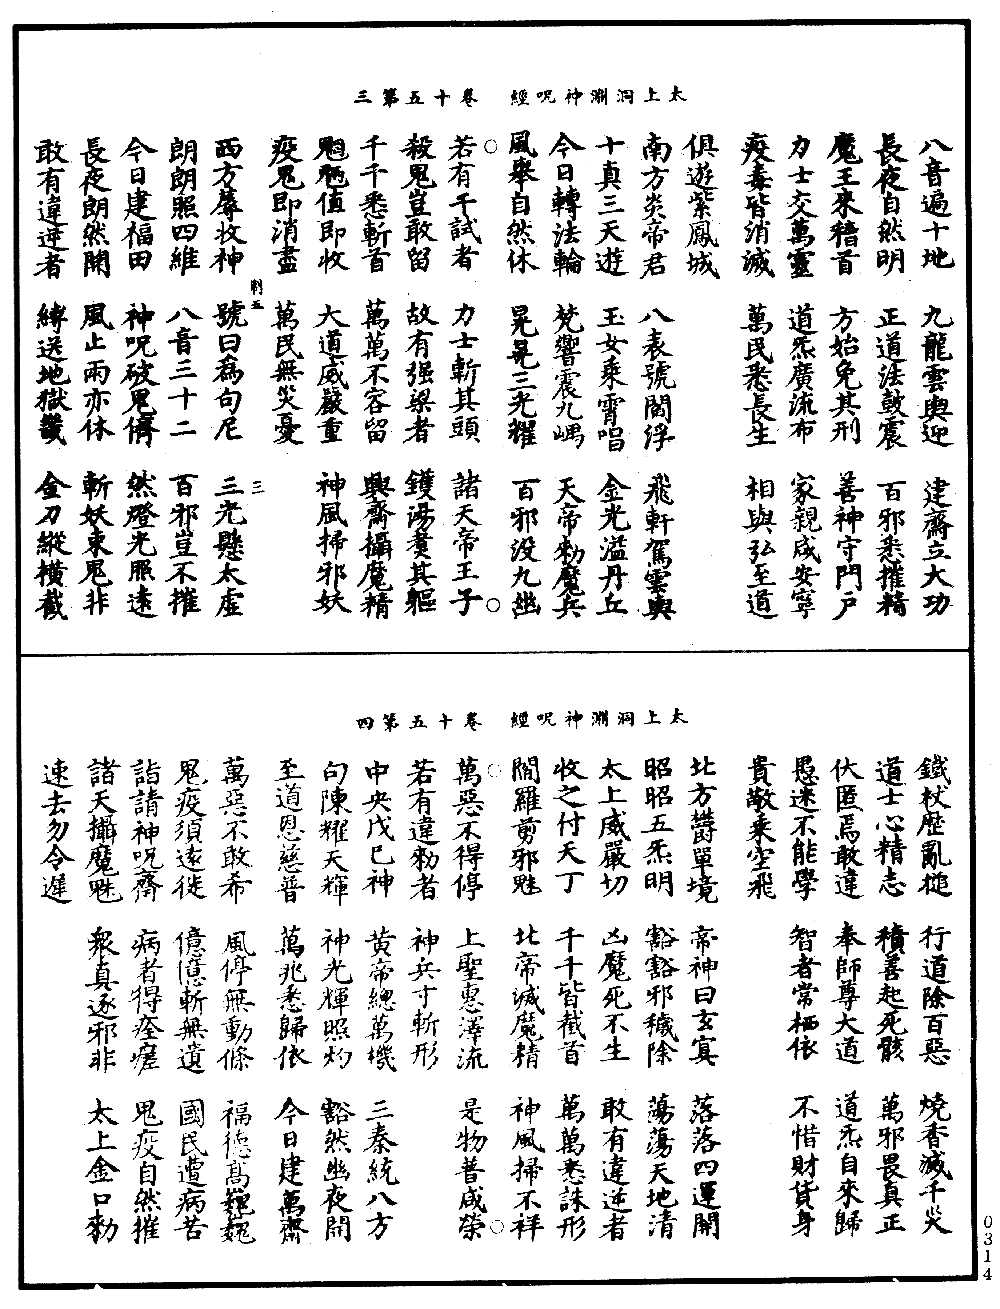 太上洞淵神呪經　卷十五第三
八音遍十地　九龍雲輿迎　建齋立大功
長夜自然明　正道法鼓震　百邪悉摧精
魔王來稽首　方始免其刑　善神守門戶
力士交萬靈　道炁廣流布　家親咸安寧
疫毒皆消滅　萬民悉長生　相與弘至道
俱遊紫鳳城
南方炎帝君　八表號閻浮　飛軒駕雲輿
十真三天遊　玉女乘霄唱　金光溢丹丘
今日轉法輪　梵響震九嵎　天帝勑魔兵
風舉自然休　晃晃三光耀　百邪没九幽
若有干試者　力士斬其頭　諸天帝王子
殺鬼豈敢留　故有强梁者　鑊湯煑其軀
千千悉斬首　萬萬不容留　興齋攝魔精
魍魎值即收　大道威嚴重　神風掃邪妖
疫鬼即消盡　萬民無災憂
西方蓐收神　號曰為句尼　三光懸太虛
朗朗照四維　八音三十二　百邪豈不摧
今日建福田　神呪破鬼儔　然燈光照遠
長夜朗然開　風止雨亦休　斬妖束鬼非
敢有違逆者　縛送地獄羈　金刀縱橫截
三
太上洞淵神呪經　卷十五第四
鐵杖歷亂槌　行道除百惡　燒香滅千災
道士心精志　積善起死骸　萬邪畏真正
伏匿焉敢違　奉師尊大道　道炁自來歸
愚迷不能學　智者常栖依　不惜財貨身
貴敬乘空飛
北方鬱單境　帝神曰玄冥　落落四運開
昭昭五炁明　豁豁邪穢除　蕩蕩天地清
太上威嚴切　凶魔死不生　敢有違逆者
收之付天丁　千千皆截首　萬萬悉誅形
閻羅剪邪魅　北帝滅魔精　神風掃不祥
萬惡不得停　上聖惠澤流　是物普咸榮
若有違勑者　神兵寸斬形
中央戊巳神　黃帝總萬機　三秦統八方
句陳耀天輝　神光輝照灼　豁然幽夜開
至道恩慈普　萬兆悉歸依　今日建萬齋
萬惡不敢希　風停無動條　福德高巍巍
鬼疫須遠徙　億億斬無遺　國民遭病苦
詣請神呪齋　病者得痊瘥　鬼疫自然摧
諸天攝魔魅　眾真逐邪非　太上金口勑
速去勿令遲
0314